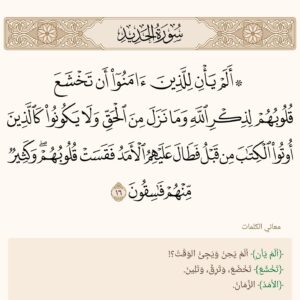 سُورَةُ الحَدِيد
۞ أَلَمْ يَأْنِ لِلَّذِينَ ءَامَنُوٓا۟ أَن تَخْشَعَ
قُلُوبُهُمْ لِذِكْرِ ٱللَّهِ وَمَا نَزَلَ مِنَ ٱلْحَقِّ وَلَا يَكُونُوا۟ كَٱلَّذِينَ
أُوتُوا۟ ٱلْكِتَٰبَ مِن قَبْلُ فَطَالَ عَلَيْهِمُ ٱلْأَمَدُ فَقَسَتْ قُلُوبُهُمْ ۖ وَكَثِيرٌ
مِّنْهُمْ فَٰسِقُونَ ١٦
معاني الكلمات
﴿أَلَمْ يَأْنِ﴾- أَلَمْ يَحِنْ وَيَجِئِ الوَقْتُ؟!
﴿تَخْشَعَ﴾ تَخْضَعَ، وَتَرِقَّ، وَتَلِينَ.
﴿الأَمَدُ﴾ الزَّمَانُ.